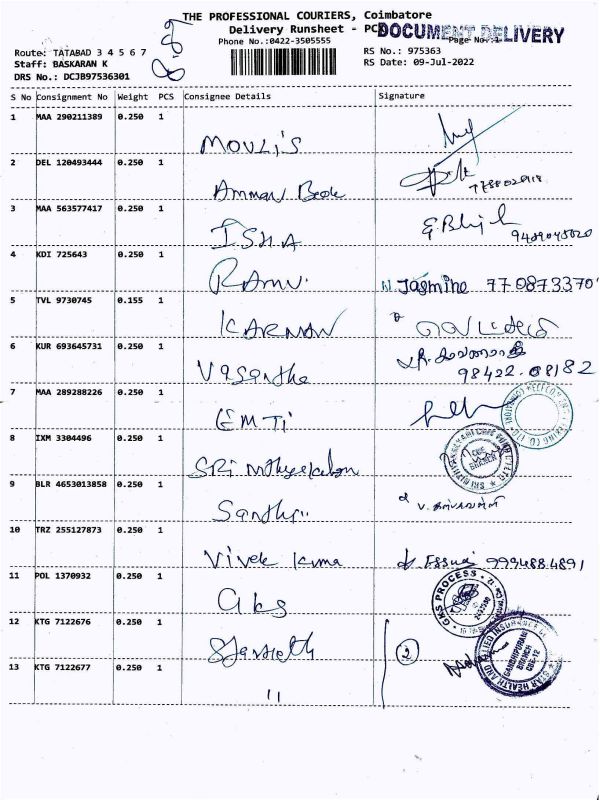 THE PROFESSIONAL COURIERS, Coimbatore
Delivery Runsheet - PCD
DOCUMENT DELIVERY
Phone No.:0422-3505555
Page No.:1
Route: TATABAD 3 4 5 6 7
Staff: BASKARAN K
DRS No.: DCJB97536301
RS No.: 975363
RS Date: 09-Jul-2022
S No Consignment No Weight PCS Consignee Details Signature
1 MAA 290211389 0.250 1 MOULI'S
2 DEL 120493444 0.250 1 Amman
3 MAA 563577417 0.250 1 ISHA
4 KDI 725643 0.250 1 RAMU. N. Jasmine 770873370
5 TVL 9730745 0.155 1 KARNAN
6 KUR 693645731 0.250 1 Vasantha 98422.08182
7 MAA 289288226 0.250 1 EMTI
8 IXM 3304496 0.250 1 SRI
9 BLR 4653013858 0.250 1 Santhi
10 TRZ 255127873 0.250 1 Vivek Kuma 999488.4891
11 POL 1370932 0.250 1 Gks
GKS PROCESS
12 KTG 7122676 0.250 1 2
STAR HEALTH AND ALLIED INSURANCE
GANDHIPURAM
BRANCH
CBE-12
13 KTG 7122677 0.250 1 11